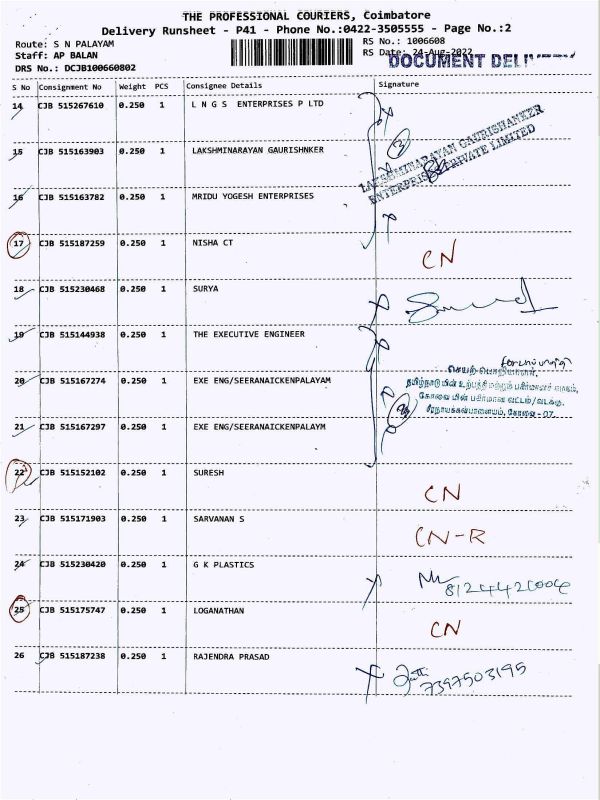 THE PROFESSIONAL COURIERS, Coimbatore
Delivery Runsheet - P41 - Phone No.:0422-3505555 - Page No.:2
Route: S N PALAYAM
Staff: AP BALAN
DRS No.: DCJB100660802
RS No.: 1006608
RS Date: 24-Aug-2022
DOCUMENT
S No Consignment No Weight PCS Consignee Details Signature
14 CJB 515267610 0.250 1 L N G S ENTERPRISES P LTD
15 CJB 515163903 0.250 1 LAKSHMINARAYAN GAURISHNKER
LAKSHMINARAYAN GAURISHANKER
ENTERPRISES PRIVATE LIMITED
3
16 CJB 515163782 0.250 1 MRIDU YOGESH ENTERPRISES
17 CJB 515187259 0.250 1 NISHA CT
CN
18 CJB 515230468 0.250 1 SURYA
19 CJB 515144938 0.250 1 THE EXECUTIVE ENGINEER
20 CJB 515167274 0.250 1 EXE ENG/SEERANAICKENPALAYAM
செயற் பொறியாளர்,
தமிழ்நாடு மின் உற்பத்தி மற்றும் பகிர்மானக் கழகம்,
கோவை மின் பகிர்மான வட்டம்/வடக்கு,
சீரநாயக்கன்பாளையம், கோவை - 07.
21 CJB 515167297 0.250 1 EXE ENG/SEERANAICKENPALAYM
22 CJB 515152102 0.250 1 SURESH
CN
23 CJB 515171903 0.250 1 SARVANAN S
CN-R
24 CJB 515230420 0.250 1 G K PLASTICS
25 CJB 515175747 0.250 1 LOGANATHAN
CN
26 CJB 515187238 0.250 1 RAJENDRA PRASAD
7397503195